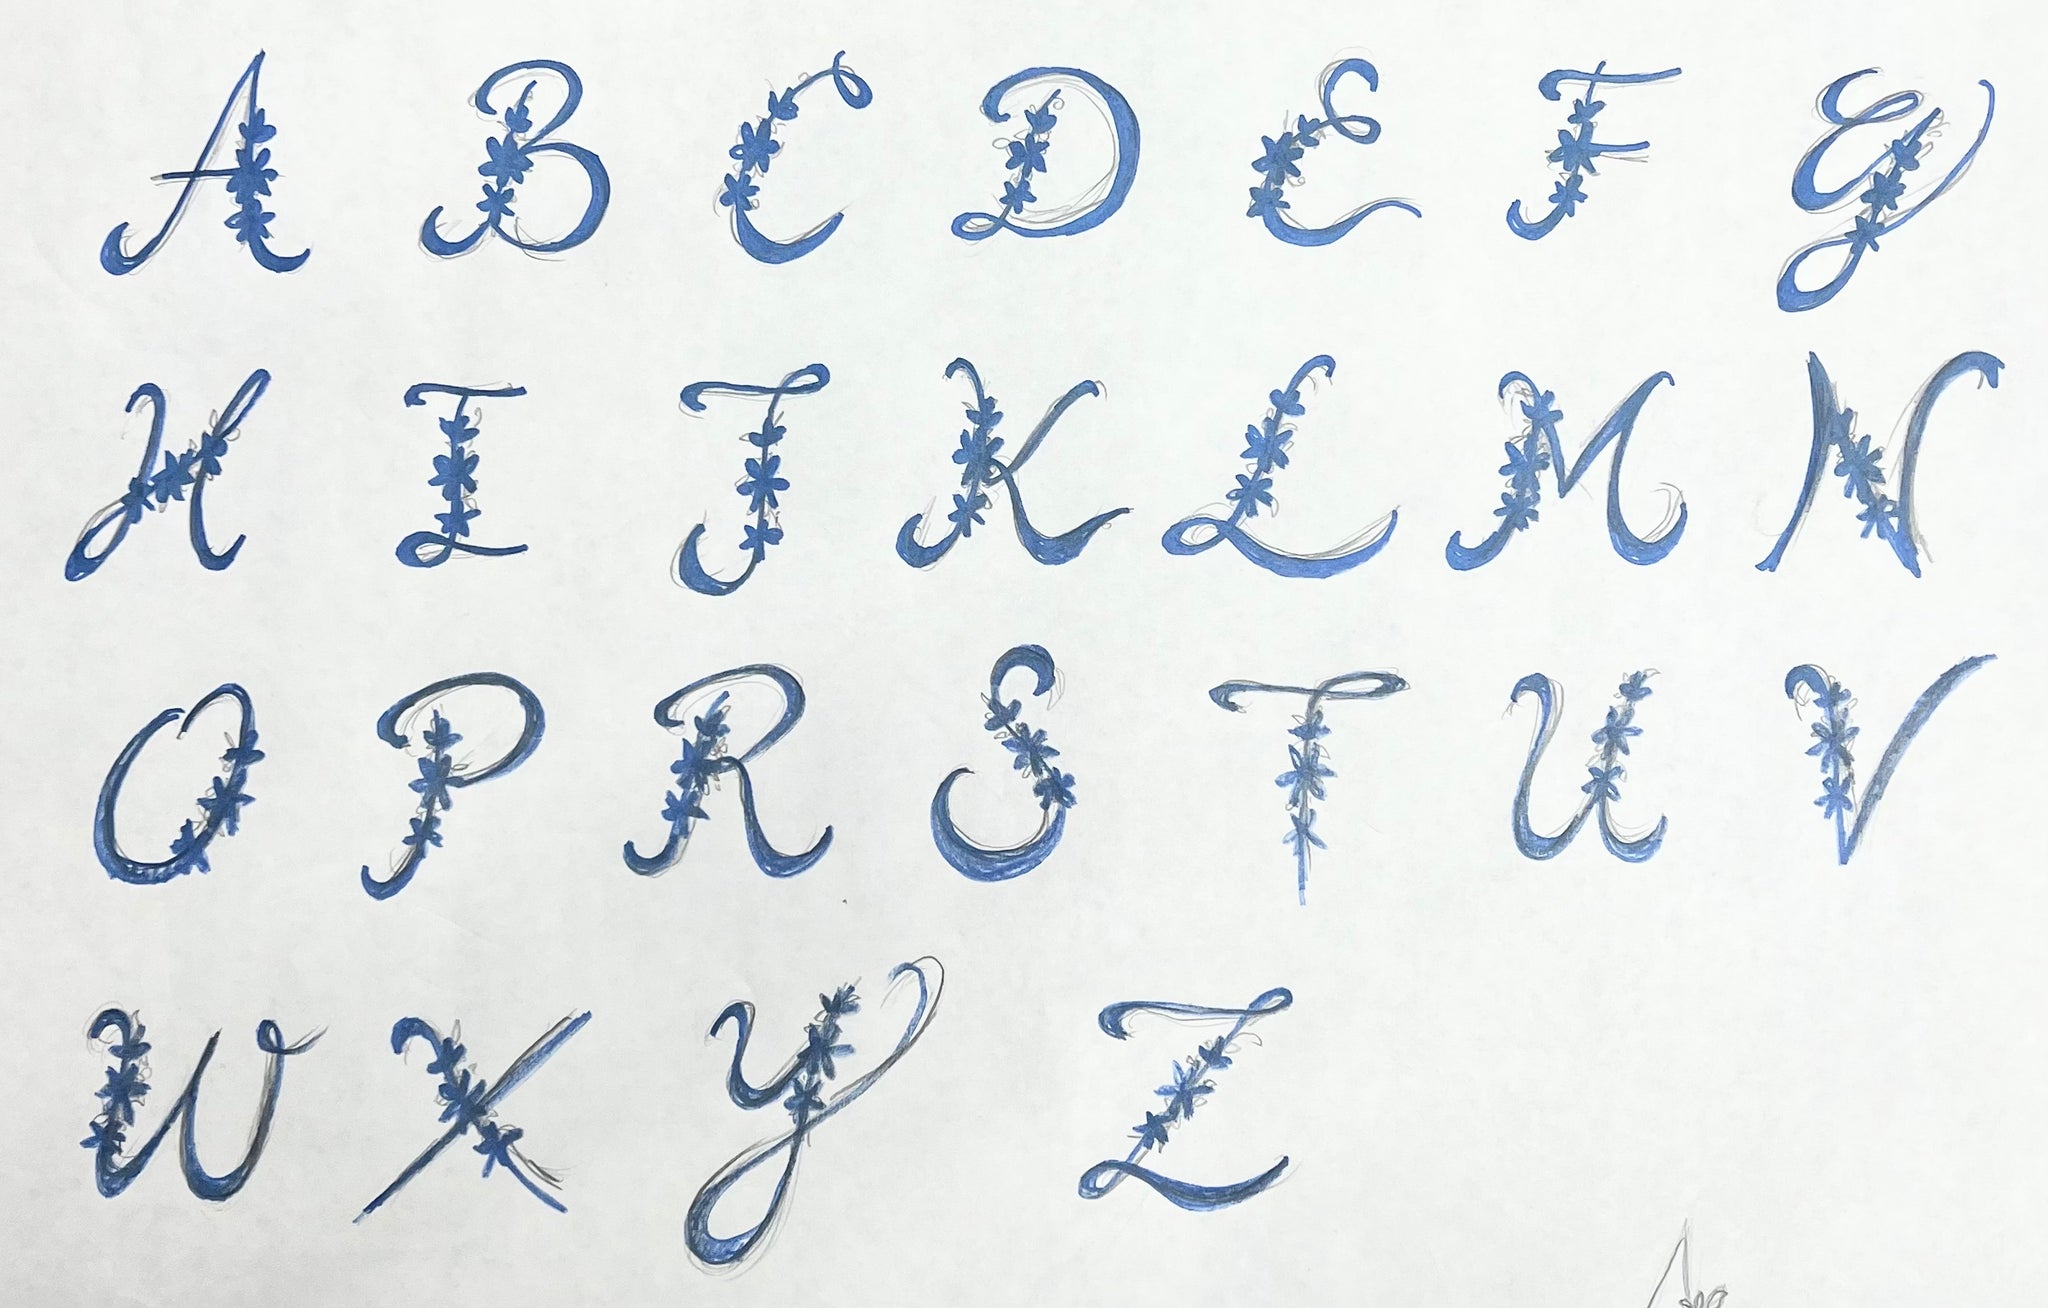 A B C D E F G
H I J K L M N
O P R S T U V
W X Y Z